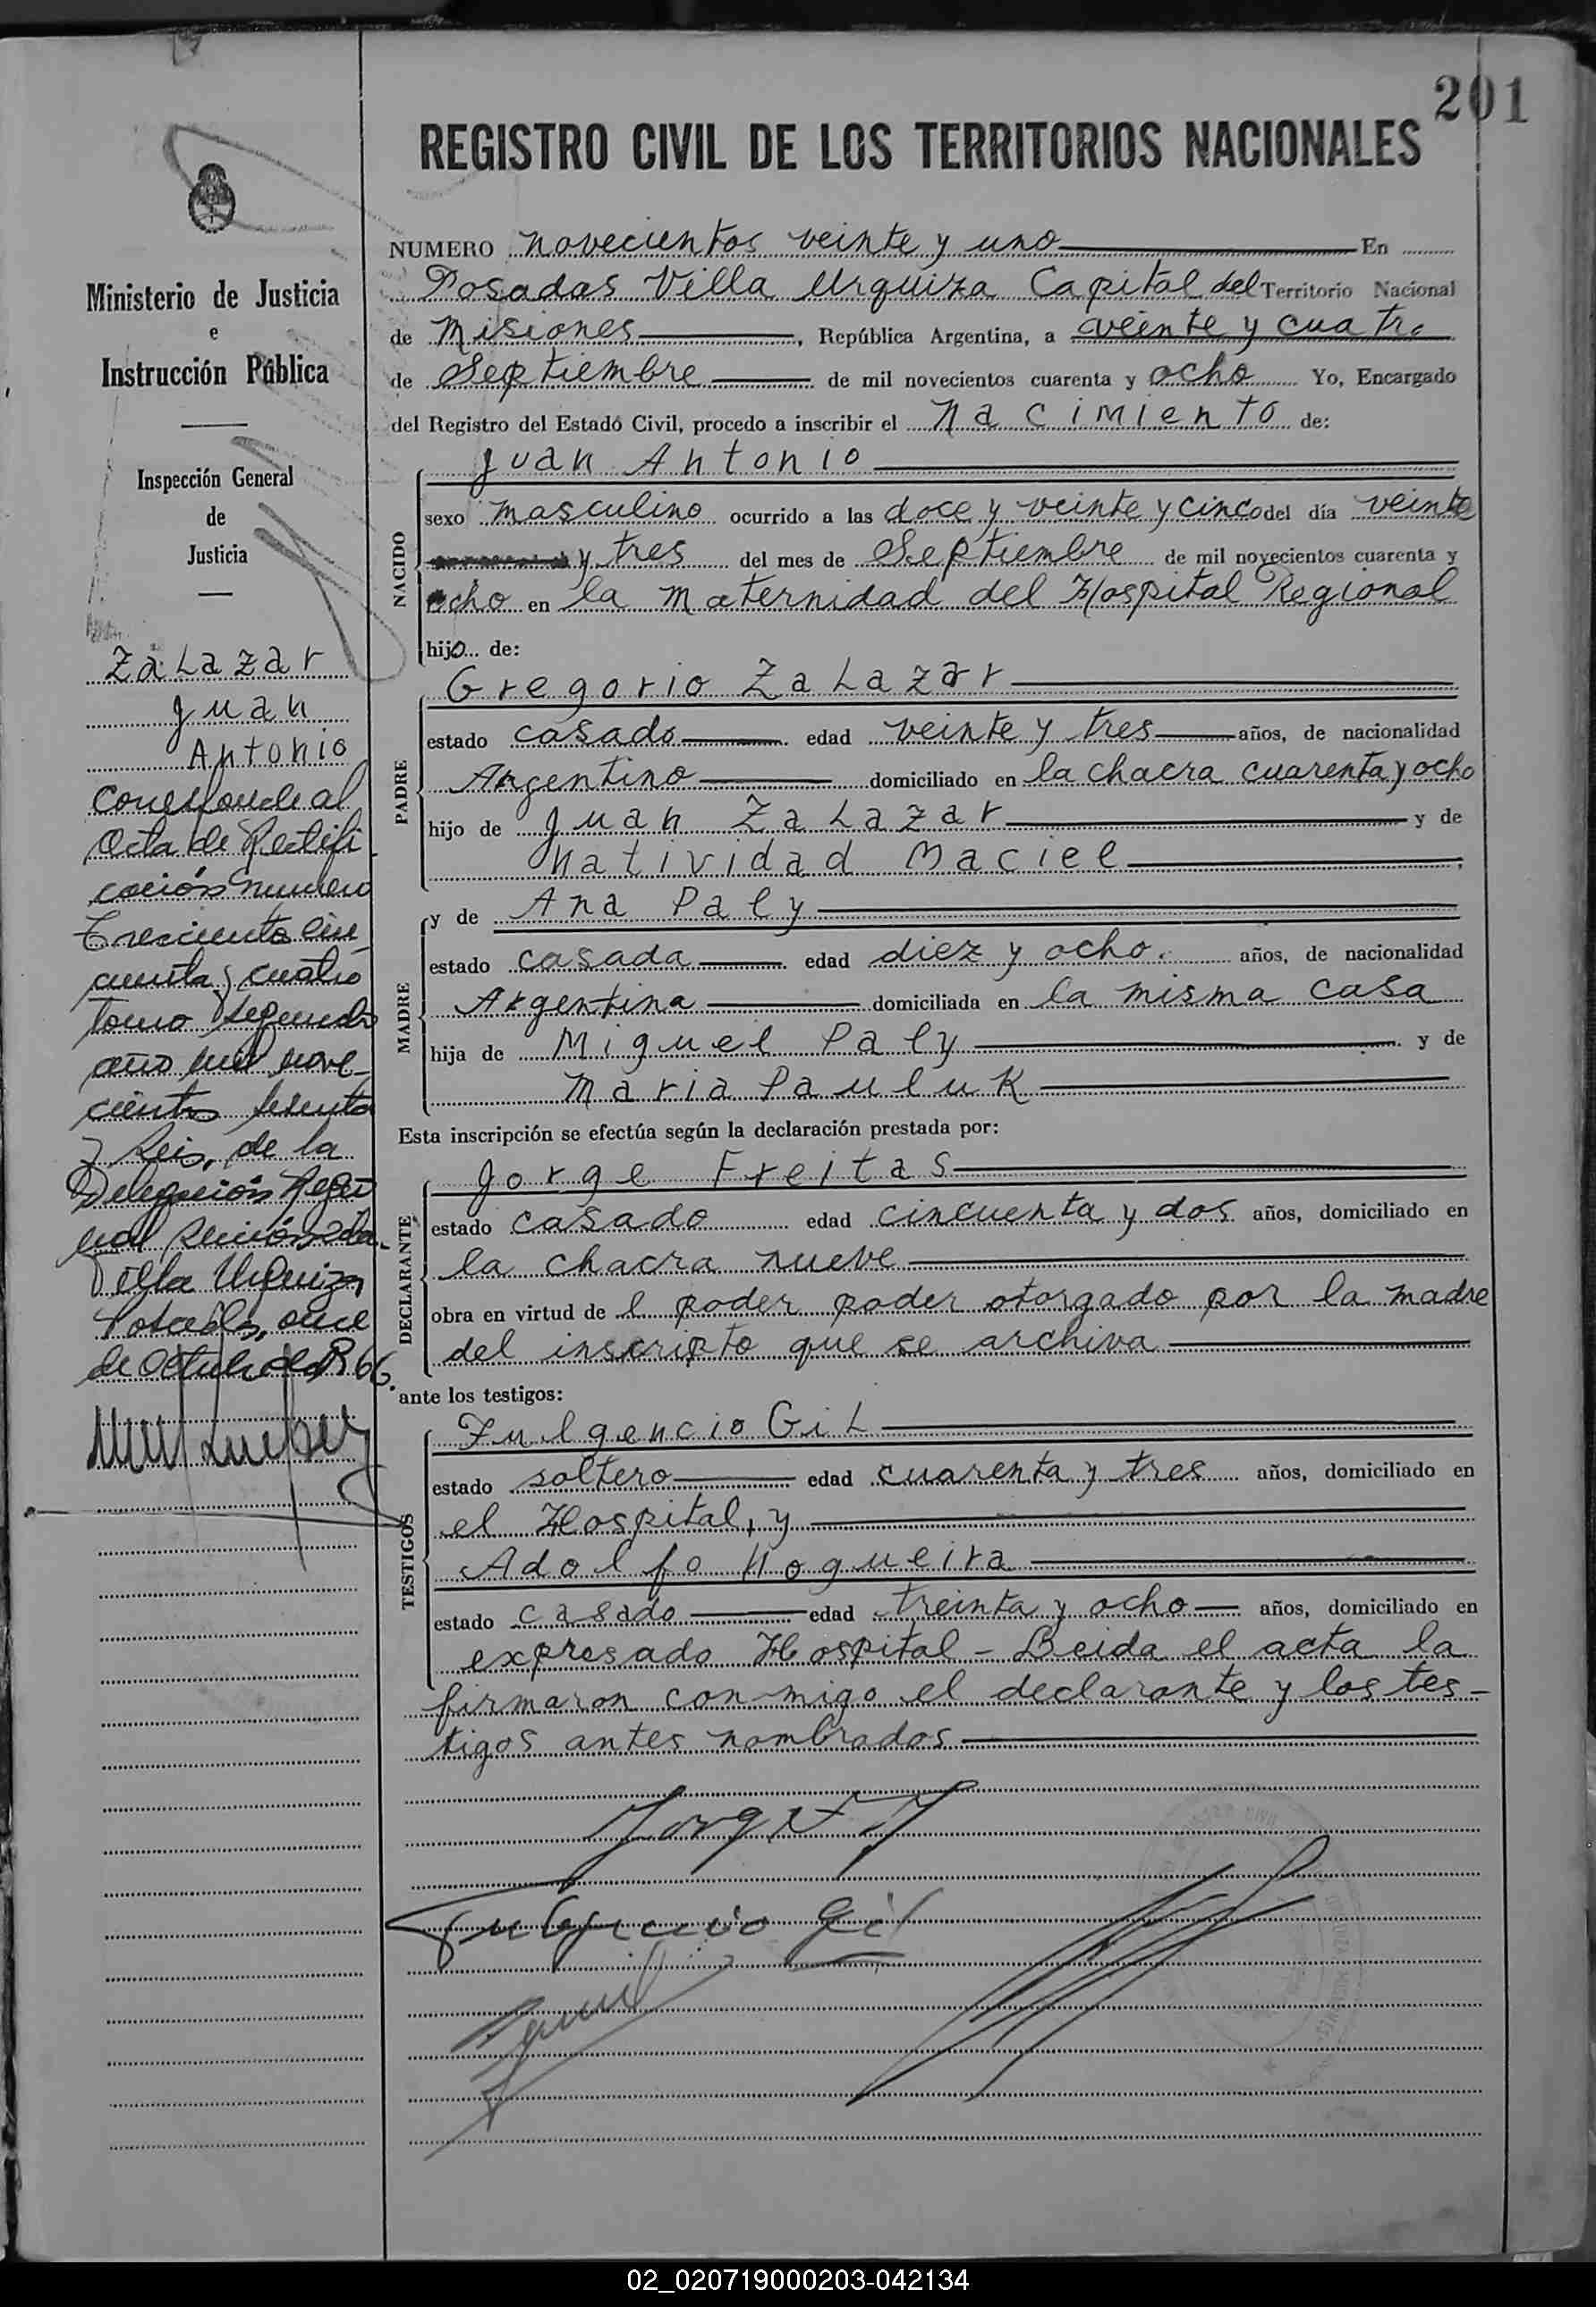 201
REGISTRO CIVIL DE LOS TERRITORIOS NACIONALES
Ministerio de Justicia
e
Instrucción Pública
Inspección General
de
Justicia
Zalazar
Juan
Antonio
Corresponde al
Acta de Rectifi
cación numero
Trescientos cin
cuenta y cuatro
tomo segundo
año mil nove-
cientos sesenta
y seis, de la
Delegación
Villa Urquiza
Posadas, once
de Octubre de 1966.
NUMERO novecientos veinte y uno En
Posadas Villa Urquiza Capital del Territorio Nacional
de Misiones, República Argentina, a veinte y cuatro
de Septiembre de mil novecientos cuarenta y ocho Yo, Encargado
del Registro del Estado Civil, procedo a inscribir el nacimiento de:
NACIDO
Juan Antonio
sexo masculino ocurrido a las doce y veinte y cinco del día veinte
y tres del mes de Septiembre de mil novecientos cuarenta y
ocho en la Maternidad del Hospital Regional
hijo de:
PADRE
Gregorio Zalazar
estado casado edad veinte y tres años, de nacionalidad
Argentino domiciliado en la chacra cuarenta y ocho
hijo de Juan Zalazar y de
Natividad Maciel;
MADRE
y de Ana Paly
estado casada edad diez y ocho. años, de nacionalidad
Argentina domiciliada en la misma casa
hija de Miguel Paly y de
Maria Pauluk
Esta inscripción se efectúa según la declaración prestada por:
DECLARANTE
Jorge Freitas
estado casado edad cincuenta y dos años, domiciliado en
la chacra nueve
obra en virtud de l poder poder otorgado por la madre
del inscripto que se archiva
ante los testigos:
TESTIGOS
Fulgencio Gil
estado soltero edad cuarenta y tres años, domiciliado en
el Hospital, y
Adolfo Nogueira
estado casado edad treinta y ocho años, domiciliado en
expresado Hospital - Leida el acta la
firmaron con migo el declarante y los tes-
tigos antes nombrados
Fulgencio Gil
02_020719000203-042134